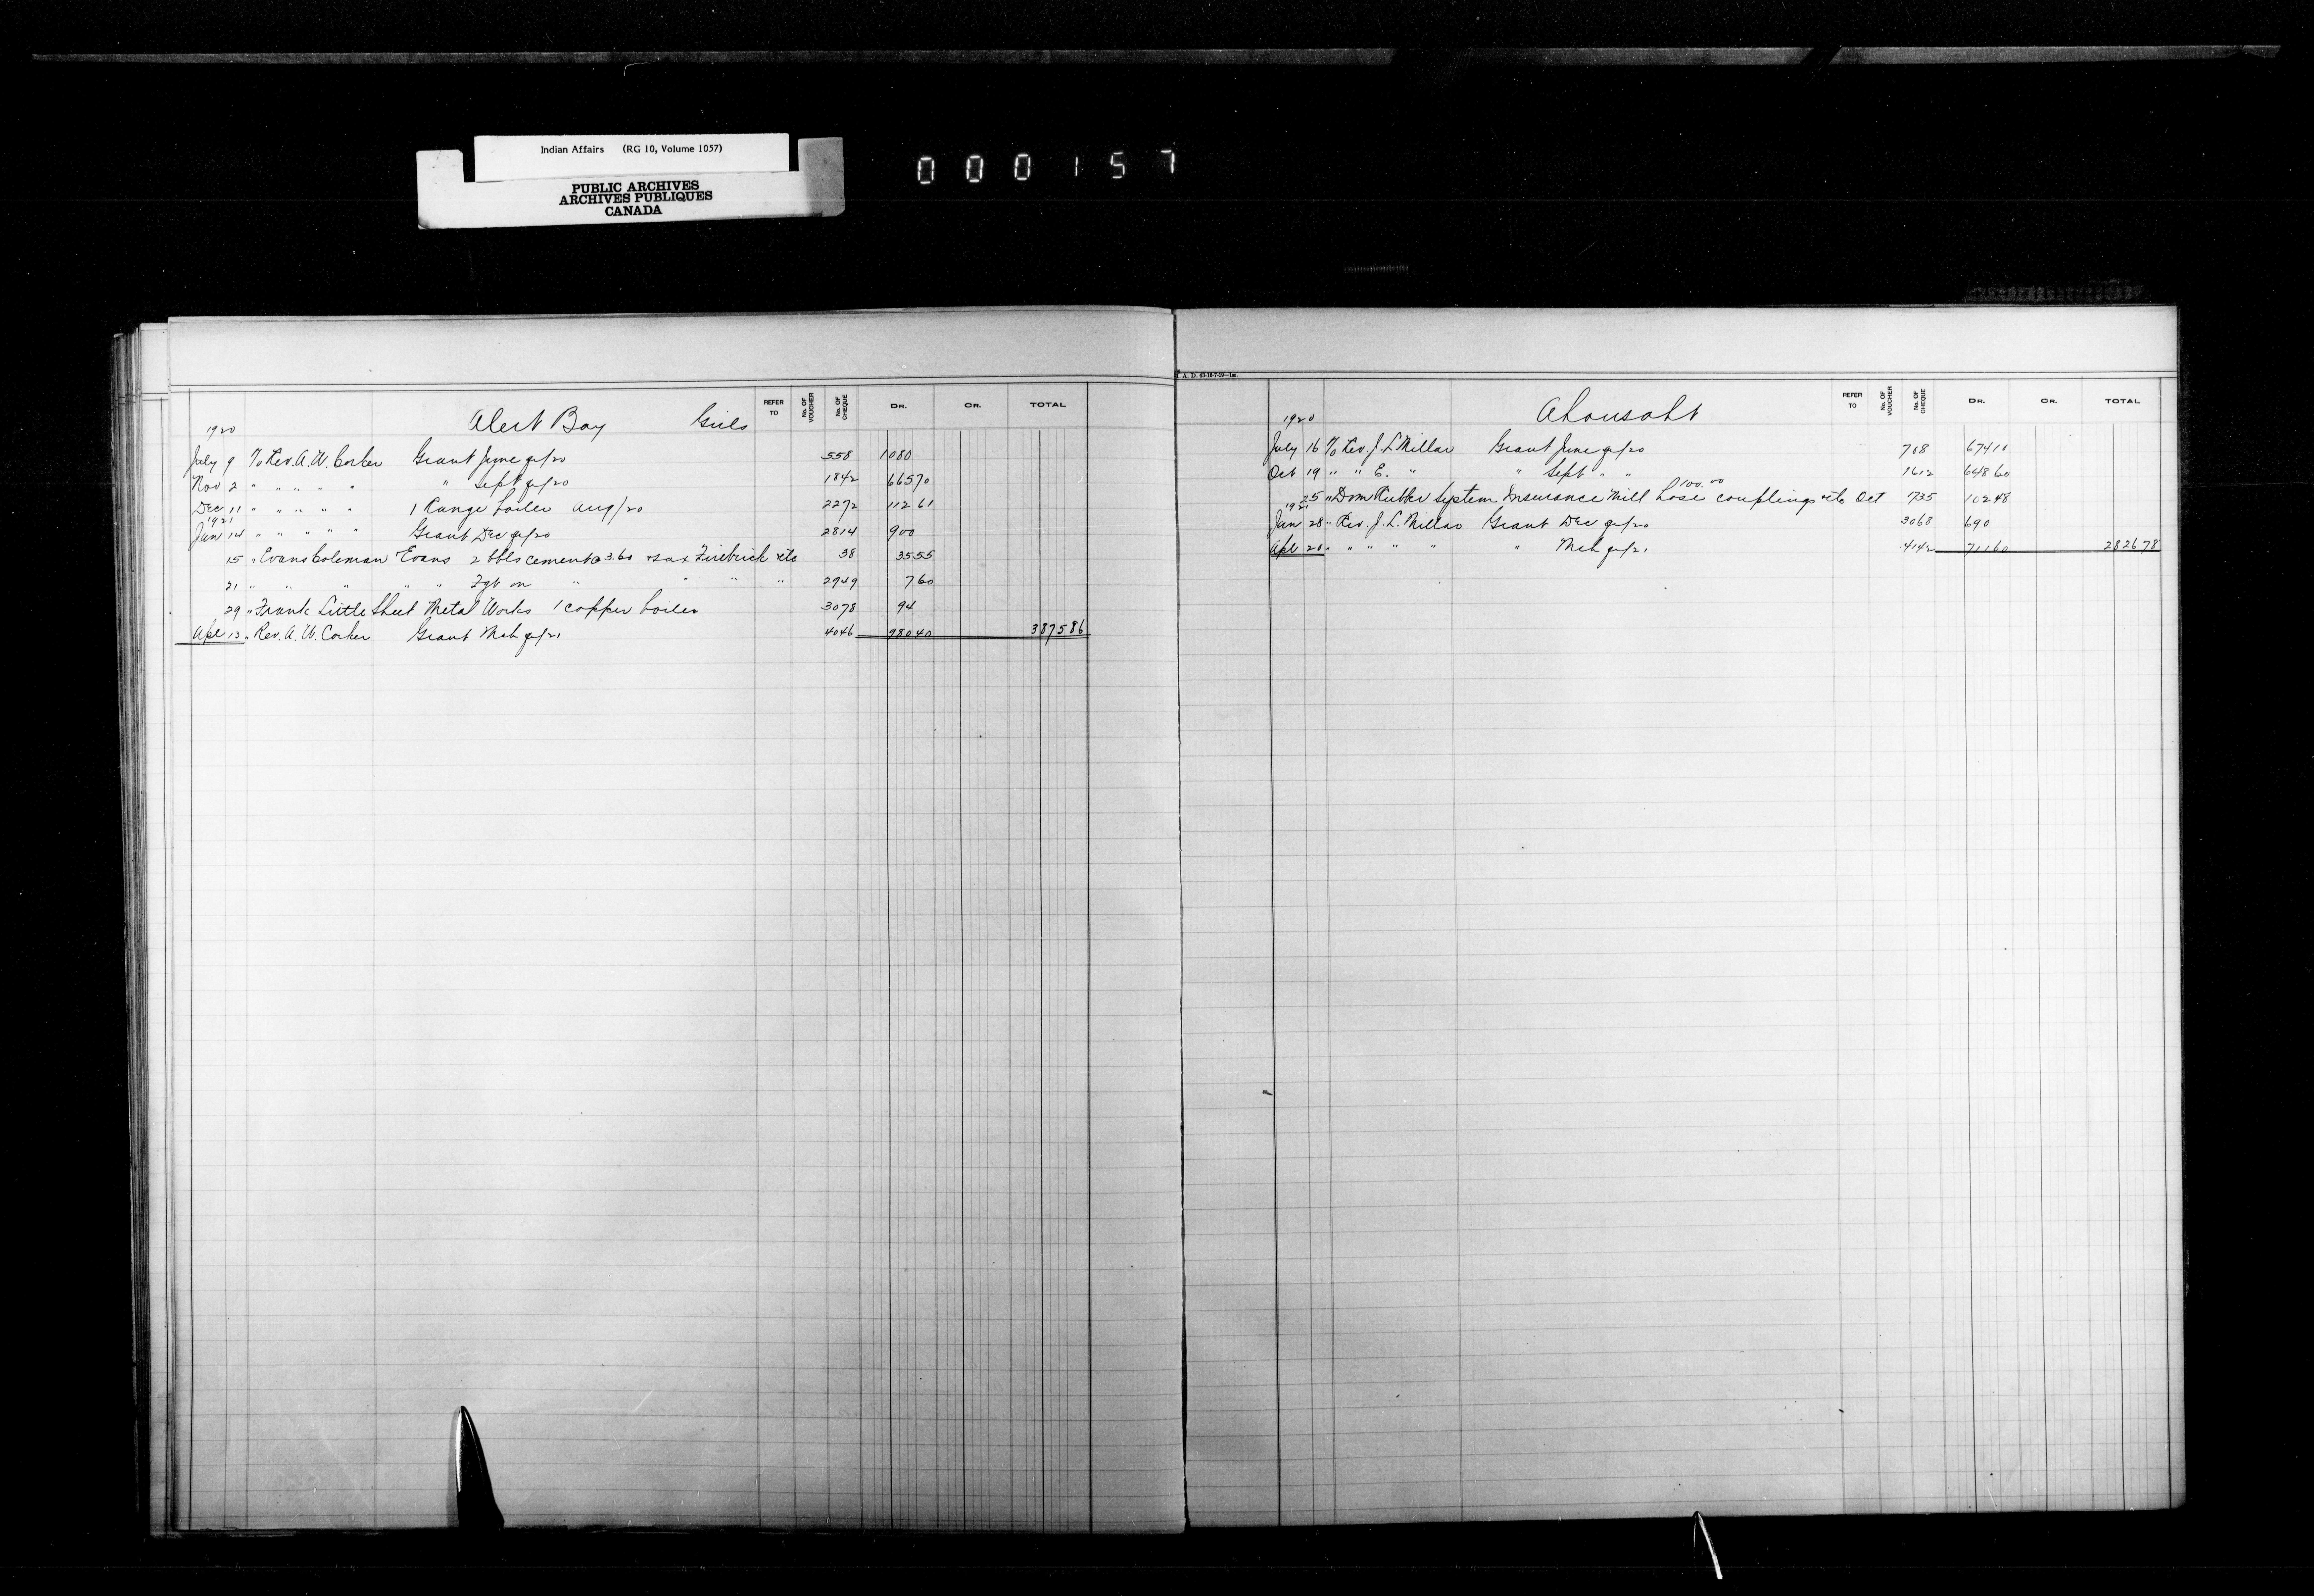 Indian Affairs (RG 10, Volume 1057)
PUBLIC ARCHIVES
ARCHIVES PUBLIQUES
CANADA
000157
REFER TO No. OF VOUCHER No. OF CHEQUE DR. CR. TOTAL
1920 Alert Bay Girls
July 9 To Rev. A. W. Corker Grant June qr/20 558 1080
Nov 2 " " " " " " Sept qr/20 1842 665 70
Dec 11 " " " " " 1 Range boiler Aug/20 2272 112 61
1921
Jan 14 " " " " " Grant Dec qr/20 2814 900
15 " Evans Coleman Evans 2 bbls cement @ 3.60 Firebrick etc 38 35 55
21 " " " " " Fgt on " " " " 2949 7 60
29 " Frank Little Sheet Metal Works 1 copper boiler 3078 94
Apl 13 " Rev. A. W. Corker Grant Mch qr/21 4046 980 40 3875 86
I. A. D.
REFER TO No. OF VOUCHER No. OF CHEQUE DR. CR. TOTAL
1920 Ahousaht
July 16 To Rev. J. L. Millar Grant June qr/20 708 674 10
Oct 19 " " E. " " Sept " " 1612 648 60
25 " Dom Rubber System Insurance Mill hose 100.00 couplings etc Oct 735 102 48
1921
Jan 28 " Rev. J. L. Millar Grant Dec qr/20 3068 690
Apl 20 " " " " " " Mch qr/21 4142 711 60 2826 78